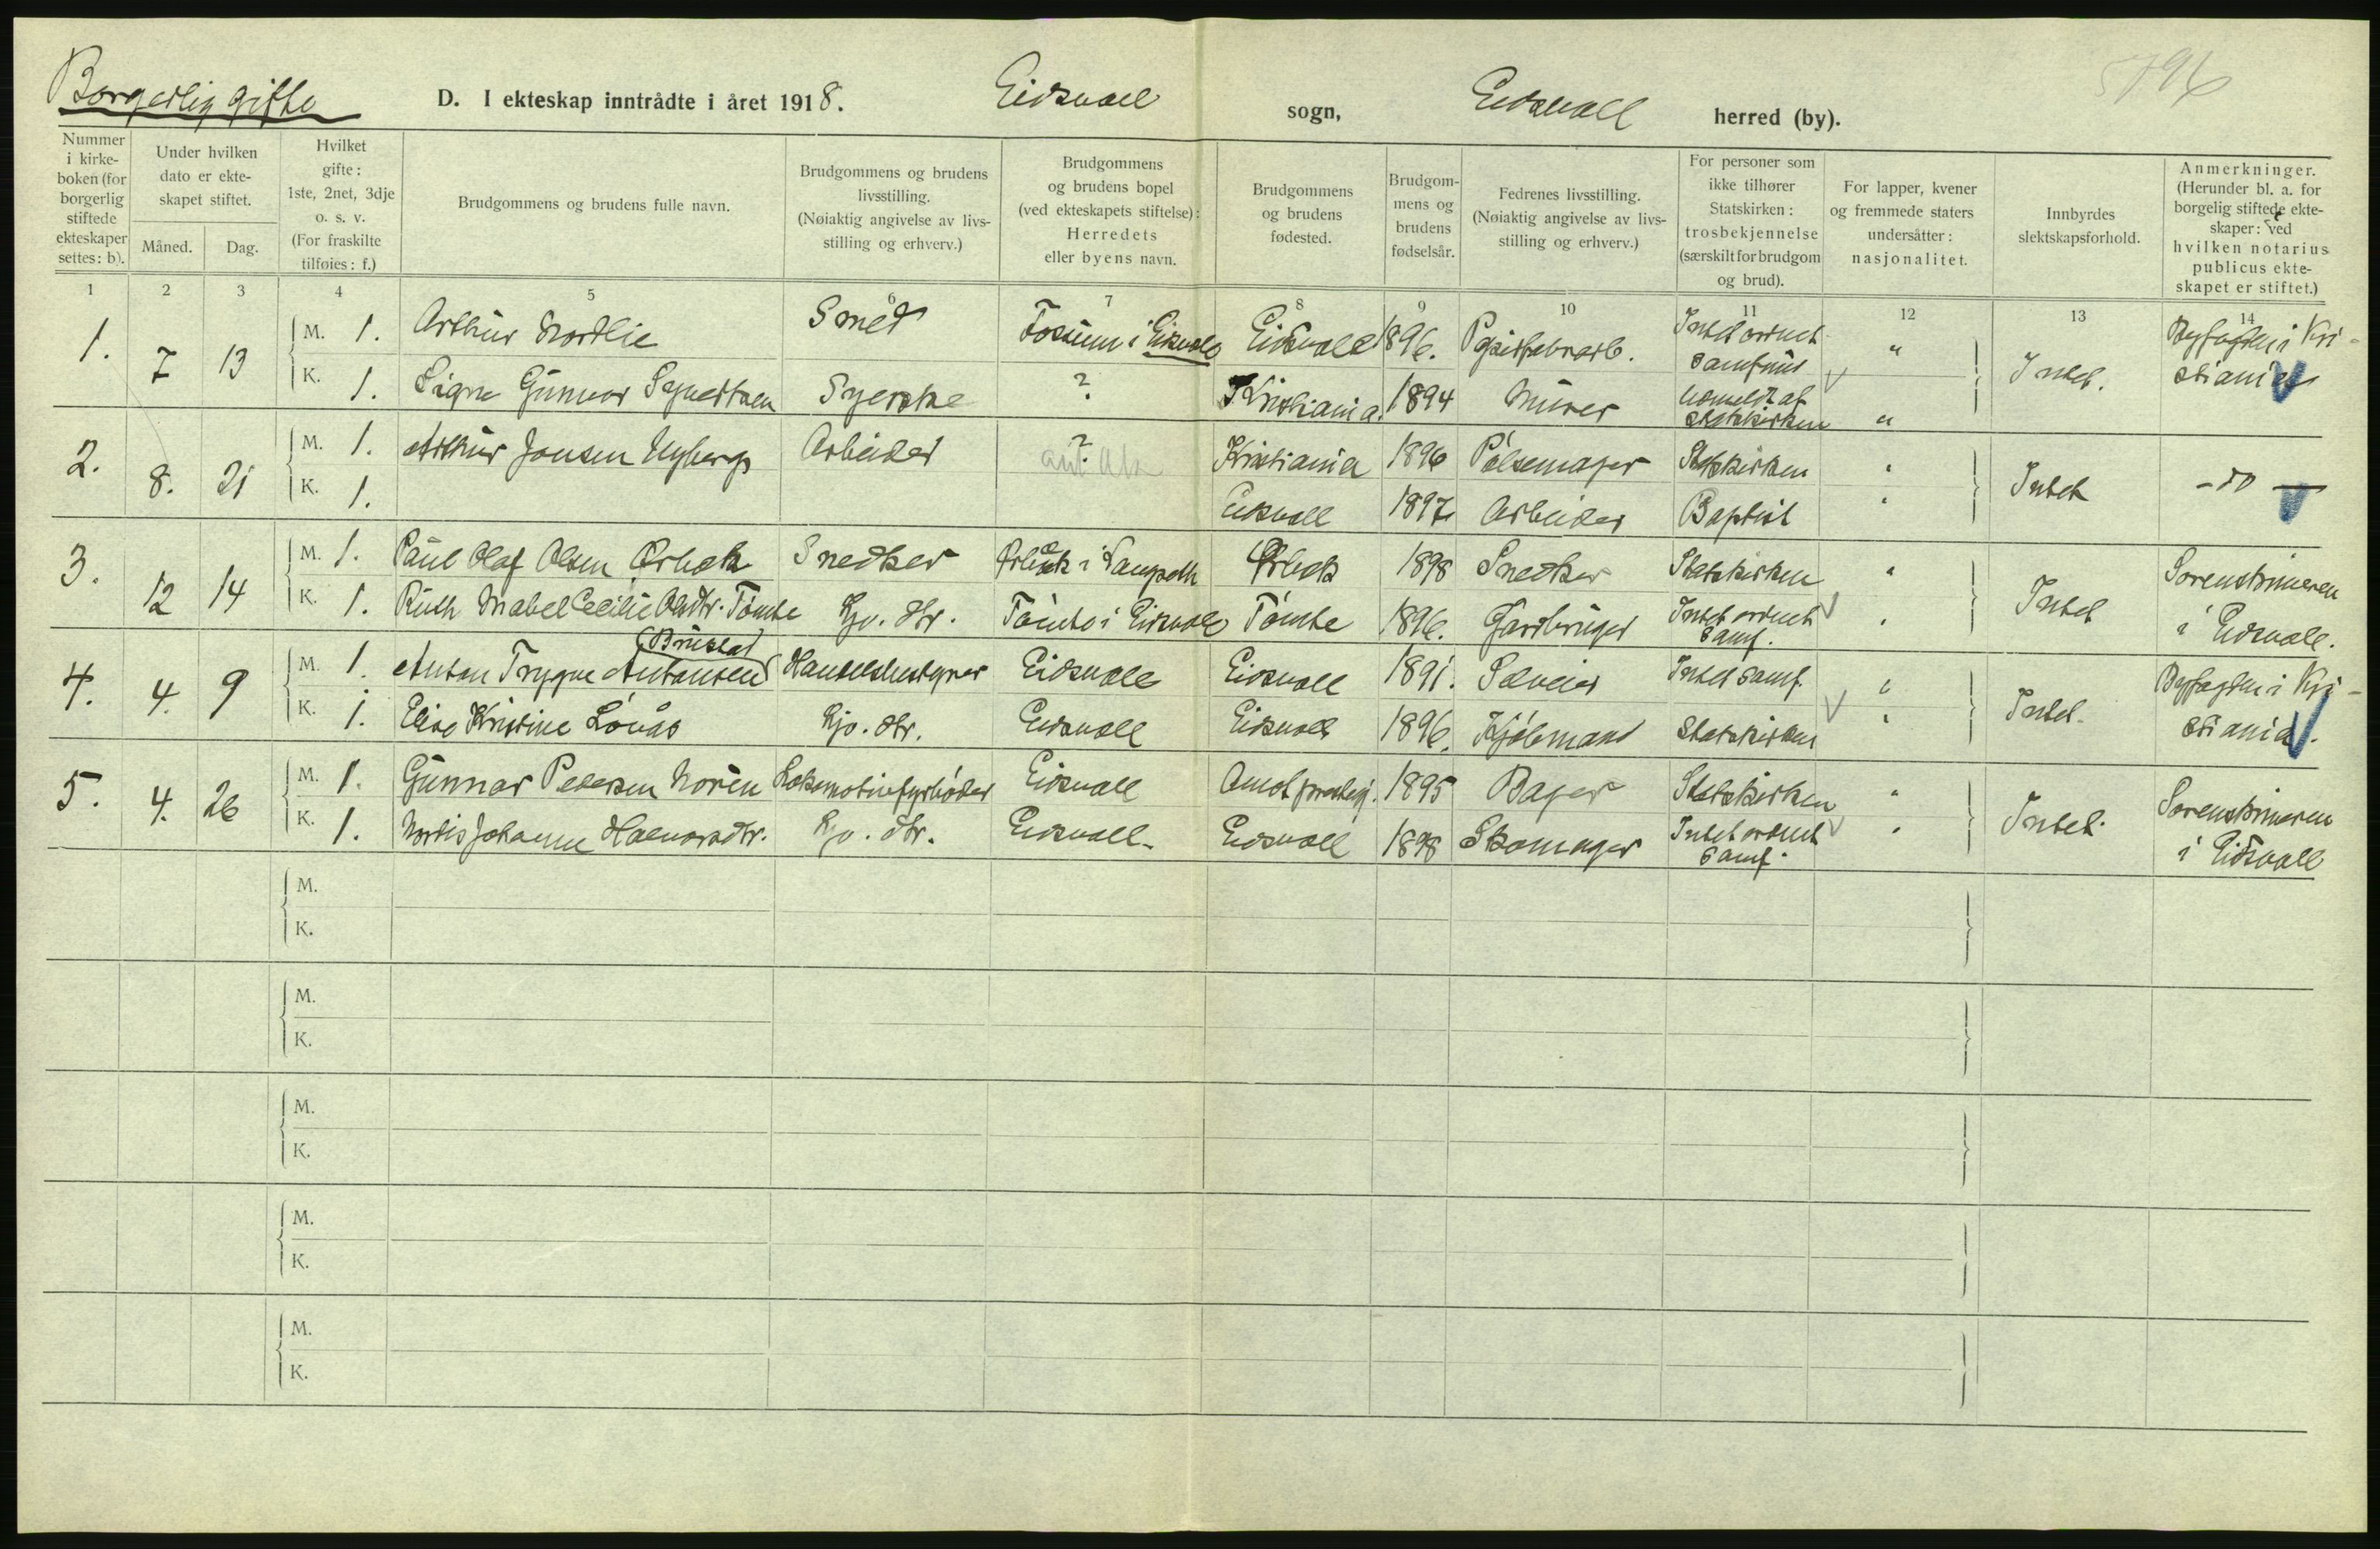 5796
Borgerlig gifte
D. I ekteskap inntrådte i året 1918. Eidsvoll sogn, Eidsvoll herred (by).
Nummer i kirkeboken (for borgerlig stiftede ekteskaper settes: b).
Under hvilken dato er ekteskapet stiftet.
Måned. Dag.
Hvilket gifte: 1ste, 2net, 3dje o. s. v. (For fraskilte tilføies: f.)
Brudgommens og brudens fulle navn.
Brudgommens og brudens livsstilling. (Nøiaktig angivelse av livsstilling og erhverv.)
Brudgommens og brudens bopel (ved ekteskapets stiftelse): Herredets eller byens navn.
Brudgommens og brudens fødested.
Brudgommens og brudens fødselsår.
Fedrenes livsstilling. (Nøiaktig angivelse av livsstilling og erhverv.)
For personer som ikke tilhører Statskirken: trosbekjennelse (særskilt for brudgom og brud).
For lapper, kvener og fremmede staters undersåtter: nasjonalitet.
Innbyrdes slektskapsforhold.
Anmerkninger. (Herunder bl. a. for borgelig stiftede ekteskaper: ved hvilken notarius publicus ekteskapet er stiftet.)
1 2 3 4 5 6 7 8 9 10 11 12 13 14
1. 7 13 M. 1. Arthur Nordlie Smed Fossum i Eidsvoll Eidsvoll 1896. Papirfabrarb. Intet ordnet samfund " Intet. Byfogden i Kristiania
K. 1. Signe Gunvor Syversten Syerske ? Kristiania. 1894 Murer Utmeldt af statskirken "
2. 8. 21 M. 1. Arthur Jensen Nyberg Arbeider ? Kristiania 1896 Pølsemager Statskirken " Intet - do -
K. 1. Eidsvoll 1897 Arbeider Baptist "
3. 12 14 M. 1. Paul Olaf Olsen Ørbæk Snedker Ørbæk i 1898 Snedker Statskirken " Intet Sorenskriveren i Eidsvoll.
K. 1. Ruth Mabel Cecilie Olsdtr. Tømte Hjv. dtr. Tømte i Eidsvoll Tømte 1896. Gardbruger Intet ordnet samf. "
4. 4. 9 M. 1. Anton Trygve Antonsen (Brustad) Handelsbestyrer Eidsvoll Eidsvoll 1891. Selveier Intet samf. " Intet. Byfogden i Kristiania.
K. 1. Elise Kristine Lønås Hjv. dtr. Eidsvoll Eidsvoll 1896. Kjøbmand Statskirken "
5. 4. 26 M. 1. Gunnar Petersen Norén Lokomotivfyrbøder Eidsvoll Åmot prestegj. 1895 Bager Statskirken " Intet. Sorenskriveren i Eidsvoll
K. 1. Nordis Johanne Halvorsdtr. Hjv. dtr. Eidsvoll. Eidsvoll 1898 Skomager Intet ordnet samf. "
M.
K.
M.
K.
M.
K.
M.
K.
M.
K.